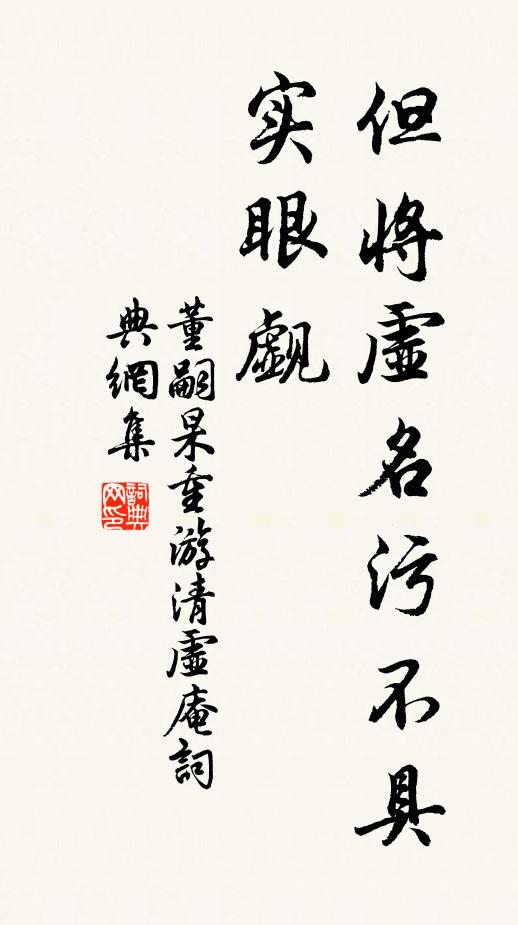 但将虚名污不具
实眼觑
董嗣杲重游清虚庵詞
典網集
詞典网印